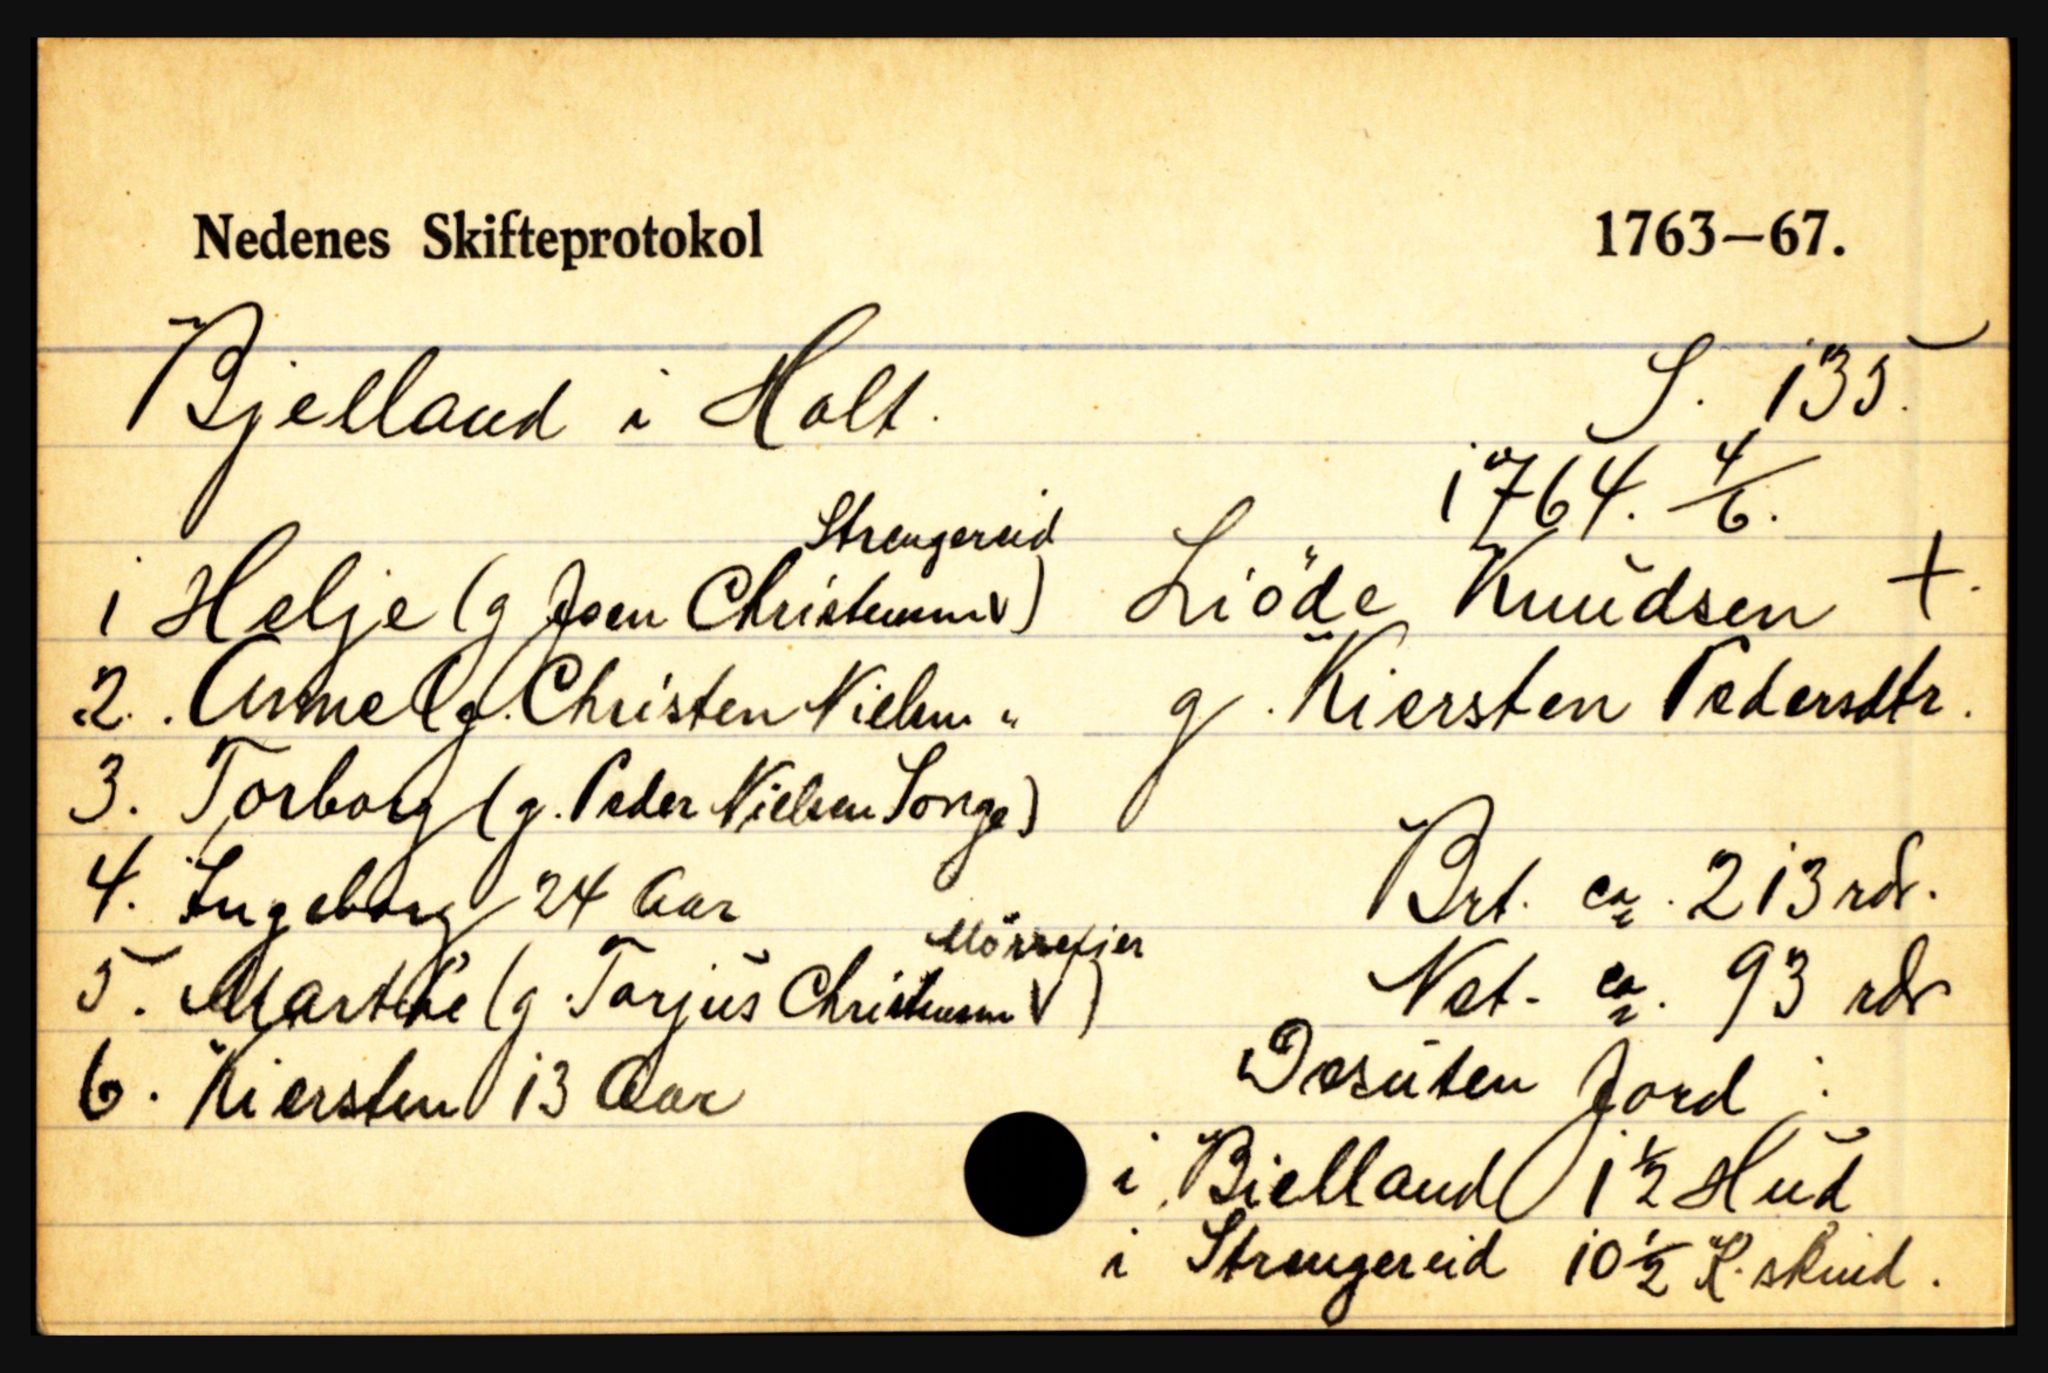 Nedenes Skifteprotokol 1763–67.
Bjelland i Holt. S. 135.
1764. 4/6.
Strengereid
1 Helje (g Joen Christensen) Liöde Knudsen +.
2. Anne (g. Christen Nielsen " g. Kiersten Pedersdtr.
3. Torborg (g. Peder Nielsen Songe)
4. Ingeborg 24 Aar Brt. ca. 213 rdr.
Mörrefier
5. Marthe (g. Torjus Christensen) Net. ca. 93 rdr
6. Kiersten 13 Aar Desuten Jord:
i Bielland 1 1/2 Hud
i Strengereid 10 1/2 K. skind.